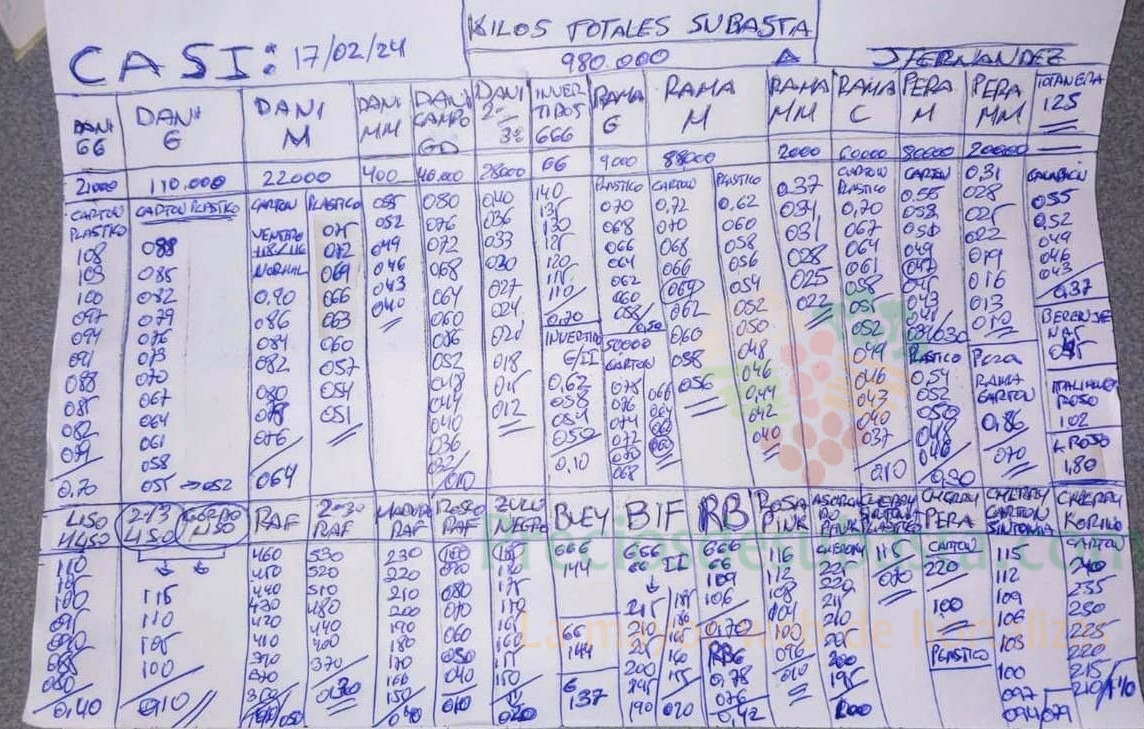 KILOS TOTALES SUBASTA
CASI: 17/02/24 980.000 JHERNANDEZ
DANI GG
DANI G
DANI M
DANI MM
DANI CAMPO GD
DANI 2ª 3ª
INVERTIDOS 666
RAMA G
RAMA M
RAMA MM
RAMA C
PERA M
PERA MM
TOTANERA 125
21000 110.000 22000 400 28000 66 9000 88000 2000 60000 80000 20000
CARTON PLASTICO
108
103
100
097
094
091
088
085
082
079
0,70
CARTON PLASTICO
088
085
082
079
076
073
070
067
064
061
058
055 → 052
CARTON
VENTERO
118/116
NORMAL
0,90
086
084
082
080
078
076
064
PLASTICO
075
072
069
066
063
060
057
054
051
055
052
049
046
043
040
080
076
072
068
064
060
056
052
048
044
040
036
032/010
040
036
033
030
027
024
021
018
015
012
140
135
130
125
120
115
110/
0,70
INVERTIDO G/II
0,62
058
054
050
0,10
PLASTICO
070
068
066
064
062
060
058/0,50
50000
CARTON
078
076
074
072
070
068
066
064
062
060
CARTON
0,72
070
068
066
064
062
060
058
056
PLASTICO
0,62
060
058
056
054
052
050
048
046
0,44
042
040
0,37
034
031
028
025
022
CARTON PLASTICO
0,70
067
064
061
058
055
052
049
046
043
040
037
0,10
CARTON
0.55
053
051
049
047
045
043
041
PLASTICO
0,54
052
050
048
046
0,30
0,31
028
025
022
019
016
013
010
PERA RAMA CARTON
0,86
070
CALABACIN
055
0,52
049
046
043
0,37
BERENJENAS
045
ITALIANO ROSO
102
L. ROSO
1,80
LISO
110
105
100
095
090
085
080
0,40
2ª/3ª LISO
GORDO LISO
115
110
105
100
010
RAF
460
450
440
430
420
410
390
370
350
2ª-3ª RAF
530
520
510
480
440
400
370
MADURO RAF
230
220
210
200
190
180
170
160
150
040
ROSO RAF
100
090
080
070
060
050
040
010
ZULU NEGRO
BUEY
666
144
66
144
6
137
BIF
666
66 II
215
210
205
200
195
190
185
180
160
155
070
RB
666
66
109
106
0,70
RB6
0,78
076
0,42
ROSA PINK
116
112
108
104
100
096
010
ASURCADO PINK
CHERRY
195
CHERRY SINTONIA PLASTICO
115
070
CHERRY PERA
CARTON
220
100
PLASTICO
CHERRY CARTON SINTONIA
115
112
109
106
103
100
097
094/079
CHERRY KORINO
CARTON
240
235
230
225
220
215
210/
Preciosdesubasta.com
La mayor web de hortalizas